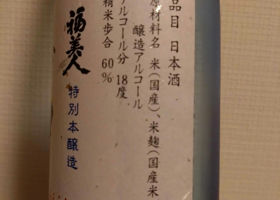 品目 日本酒
原材料名 米(国産)、米麹(国産米
醸造アルコール
アルコール分 18度
精米歩合 60%
福美人
特別本醸造